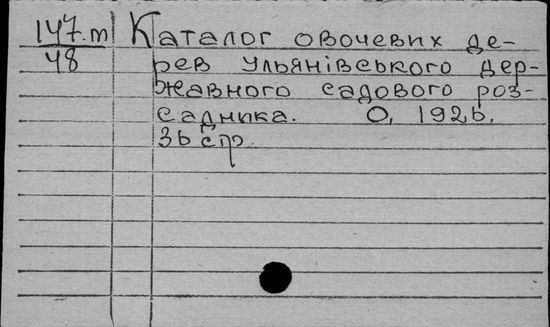 147.m Каталог овочевих де-
48 рев Ульянівського дер-
жавного садового роз-
садника. О, 1926.
36 стр.